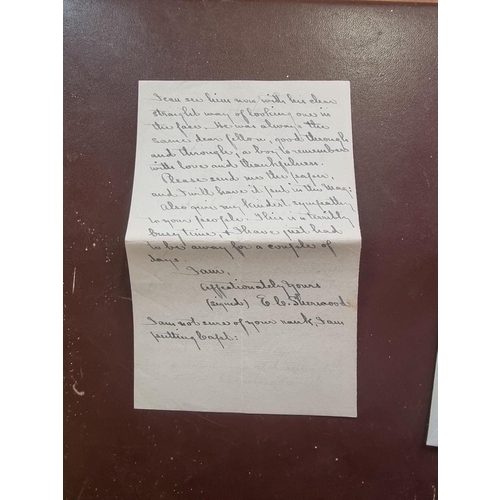 I can see him now with his clear
straight way of looking one in
the face. He was always the
same dear fellow, good through
and through, a boy to remember
with love and thankfulness.
Please send me the paper,
and I will have it put in the Mag:
Also give my kindest sympathy
to your people. This is a terribly
busy time, & I have just had
to be away for a couple of
days.
I am,
Affectionately Yours
(signed) E. C. Sherwood
I am not sure of your rank, I am
putting Capt.: